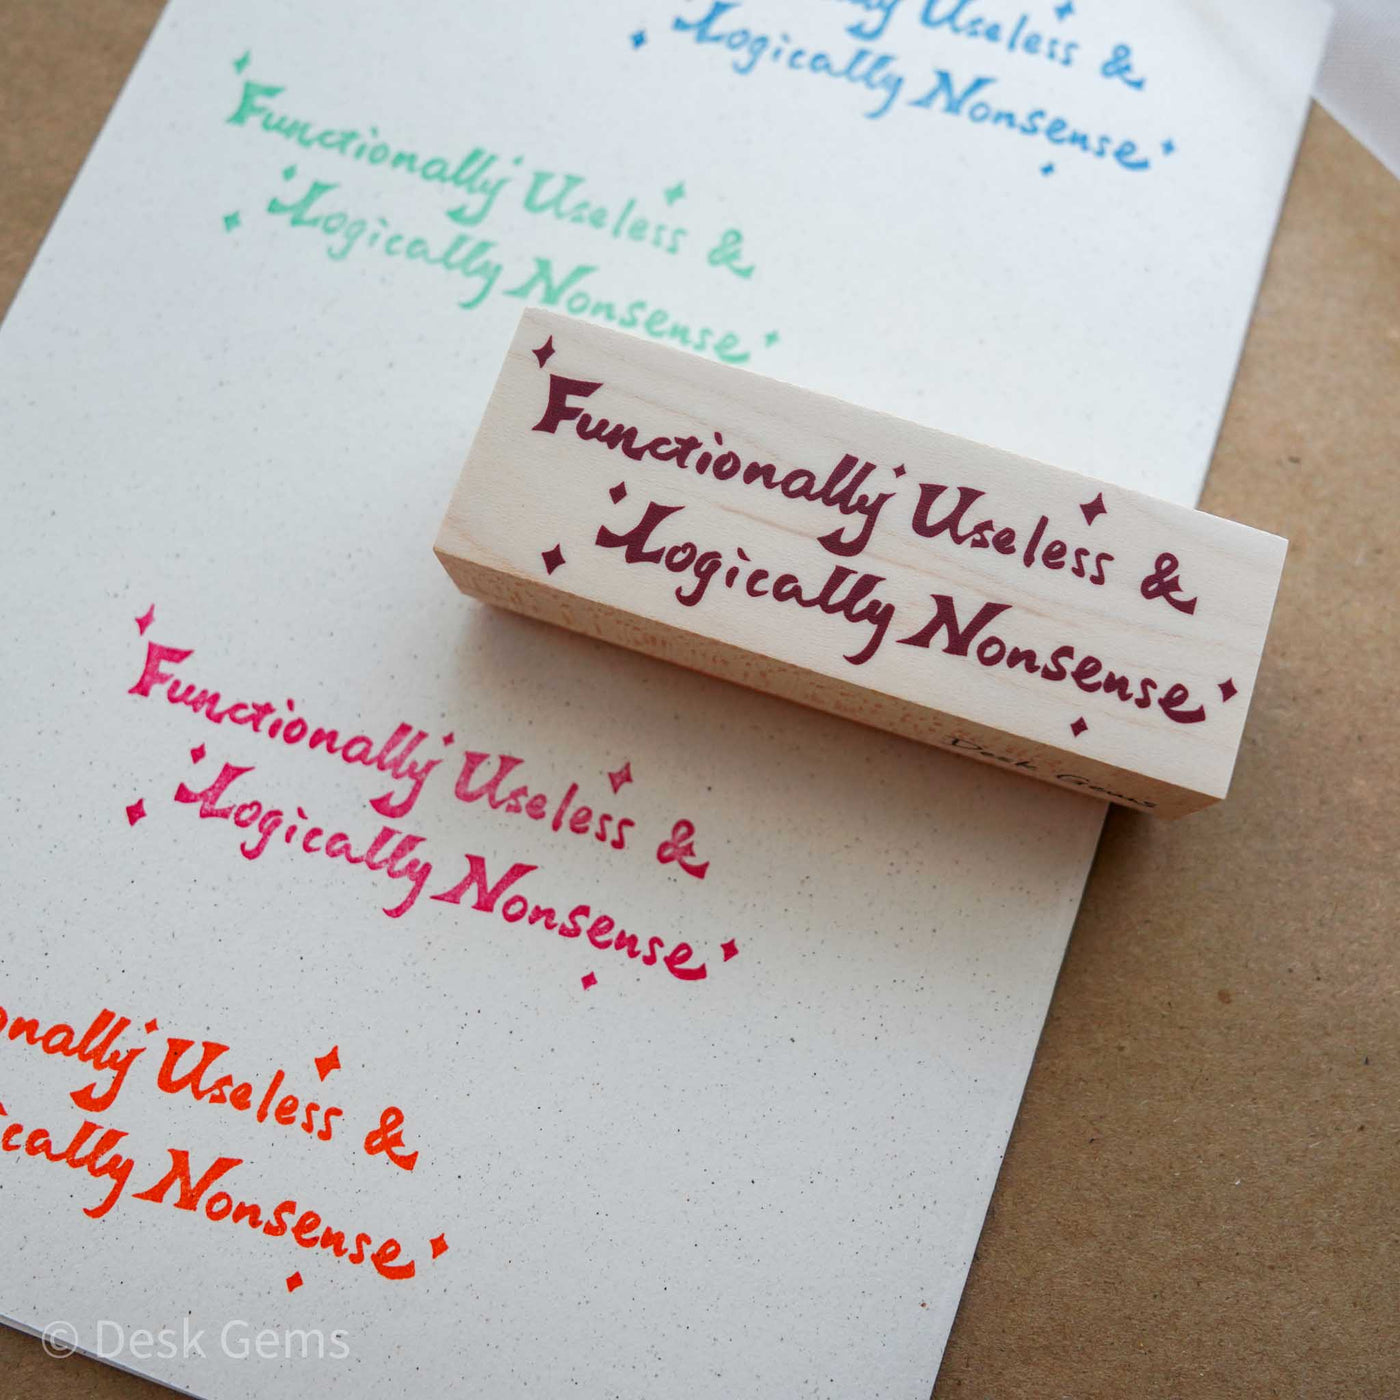 Useless &
Logically Nonsense
Functionally Useless &
Logically Nonsense
Functionally Useless &
Logically Nonsense
Desk Gems
Functionally Useless &
Logically Nonsense
onally Useless &
ically Nonsense
© Desk Gems